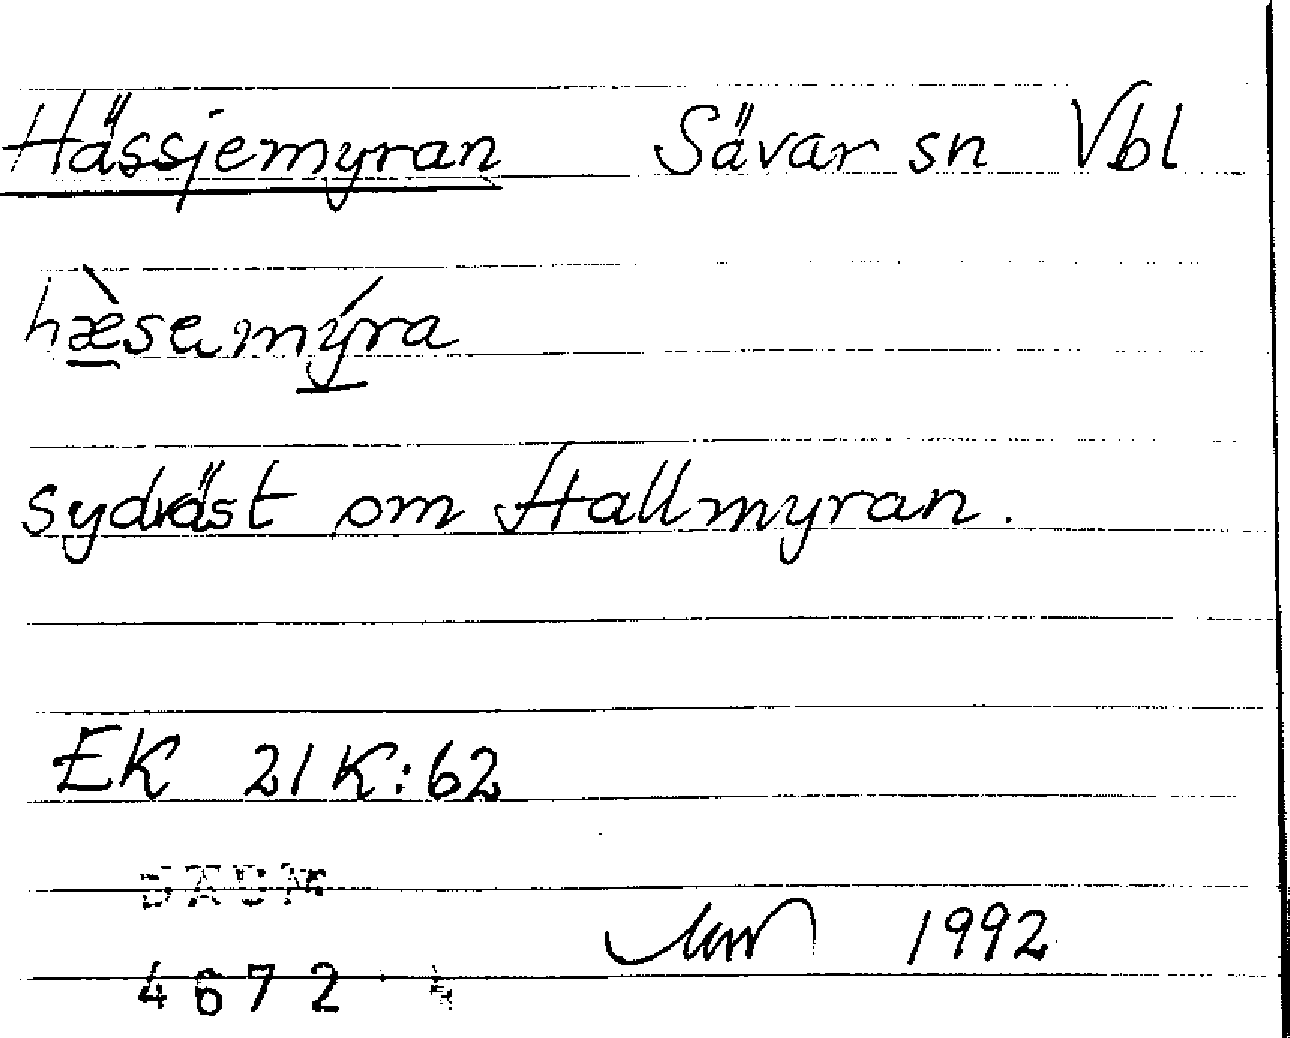 Hässjemyran Sävar sn Vbl
hæ̀samýra
sydväst om Hallmyran.
EK 21K:62
DAUM
1992
4672